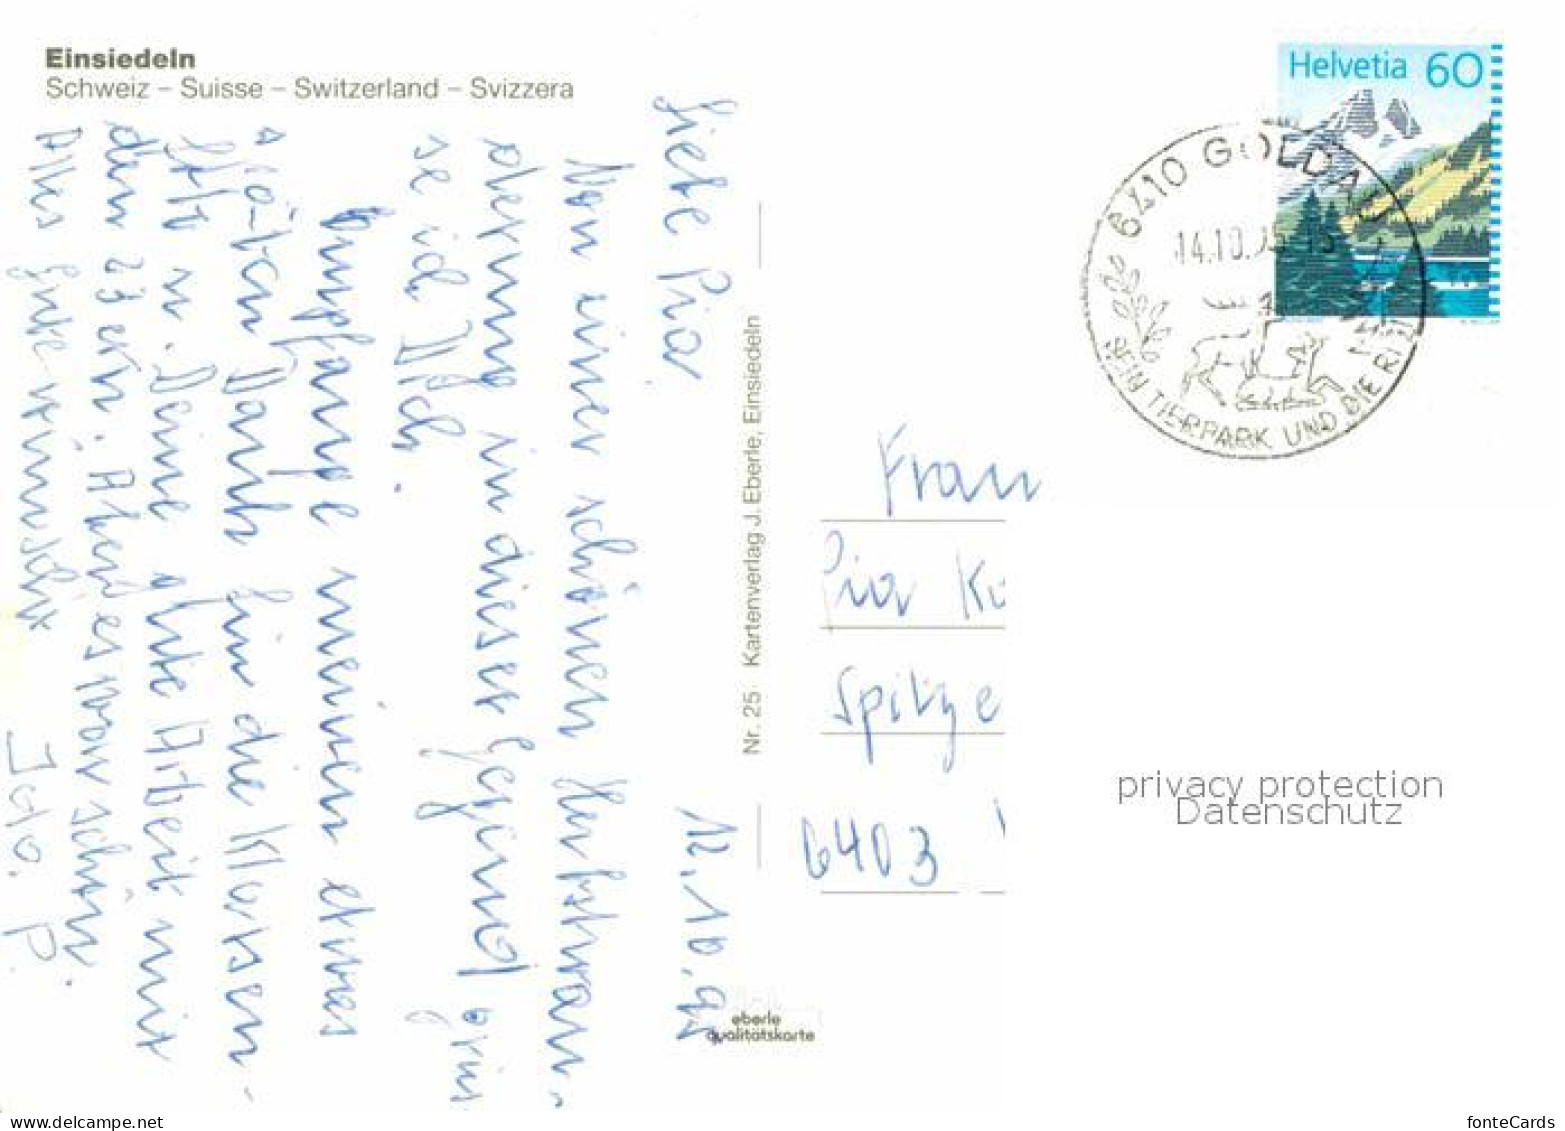 Einsiedeln
Schweiz – Suisse – Switzerland – Svizzera
12.10.95
Liebe Pia
Von einer schönen Herbstwan-
derung in dieser Gegend grüs
se ich Dich.
Empfange meinen etwas
späten Dank für die Klassen-
u. Deine gute Arbeit mit
den 27 ern. Aber es war schön.
Alles Gute wünscht
P.
Nr. 25 Kartenverlag J. Eberle, Einsiedeln
eberle
qualitätskarte
Helvetia 60
6410 GOLDAU
14.10.95
TIERPARK UND DIE RIGI
Frau
Pia
Spitze
6403
privacy protection
Datenschutz
www.delcampe.net
fonteCards